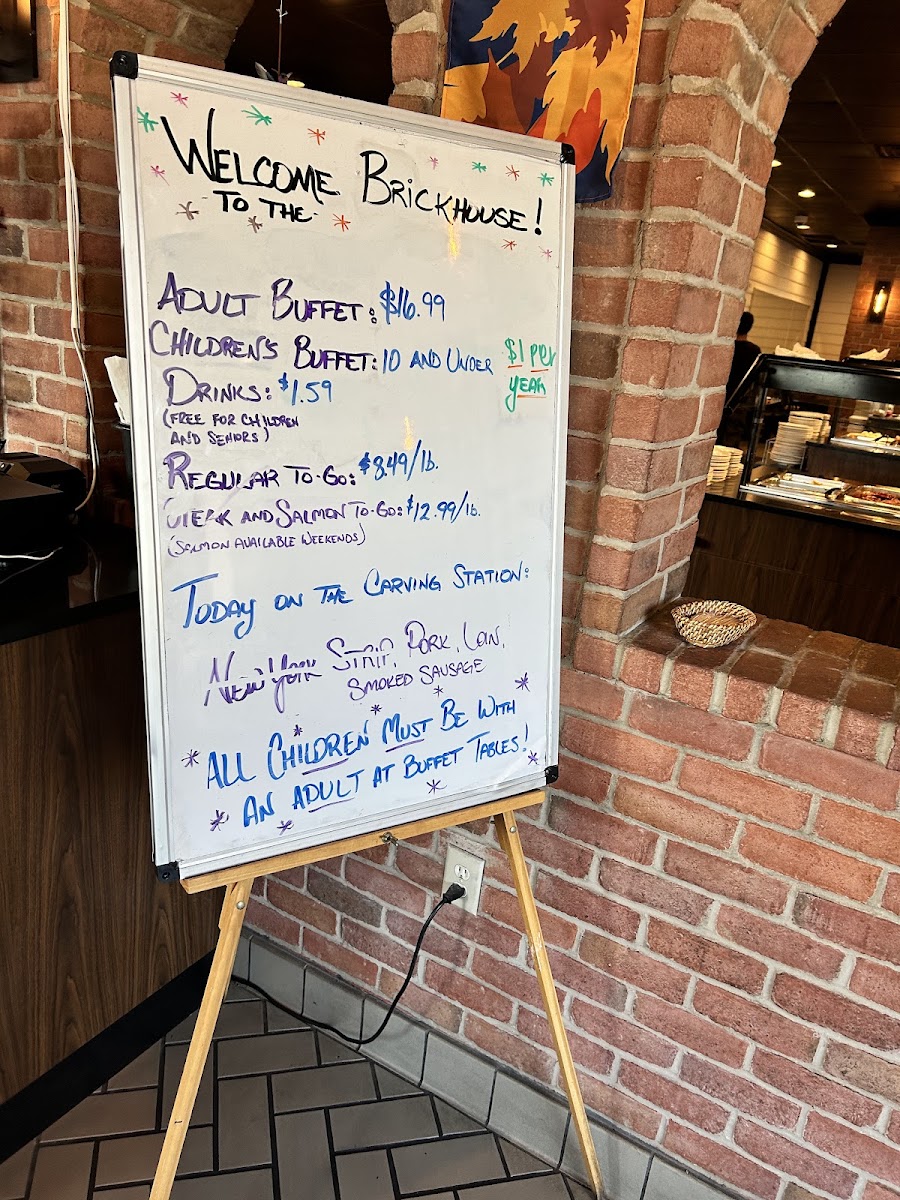 WELCOME
TO THE BRICKHOUSE!
ADULT BUFFET: $16.99
CHILDREN'S BUFFET: 10 AND UNDER $1 PER YEAR
DRINKS: $1.59
(FREE FOR CHILDREN
AND SENIORS)
REGULAR TO-GO: $8.49/lb.
STEAK AND SALMON TO-GO: $12.99/lb.
(SALMON AVAILABLE WEEKENDS)
TODAY ON THE CARVING STATION:
NEW YORK STRIP, PORK, LOIN,
SMOKED SAUSAGE
ALL CHILDREN MUST BE WITH
AN ADULT AT BUFFET TABLES!